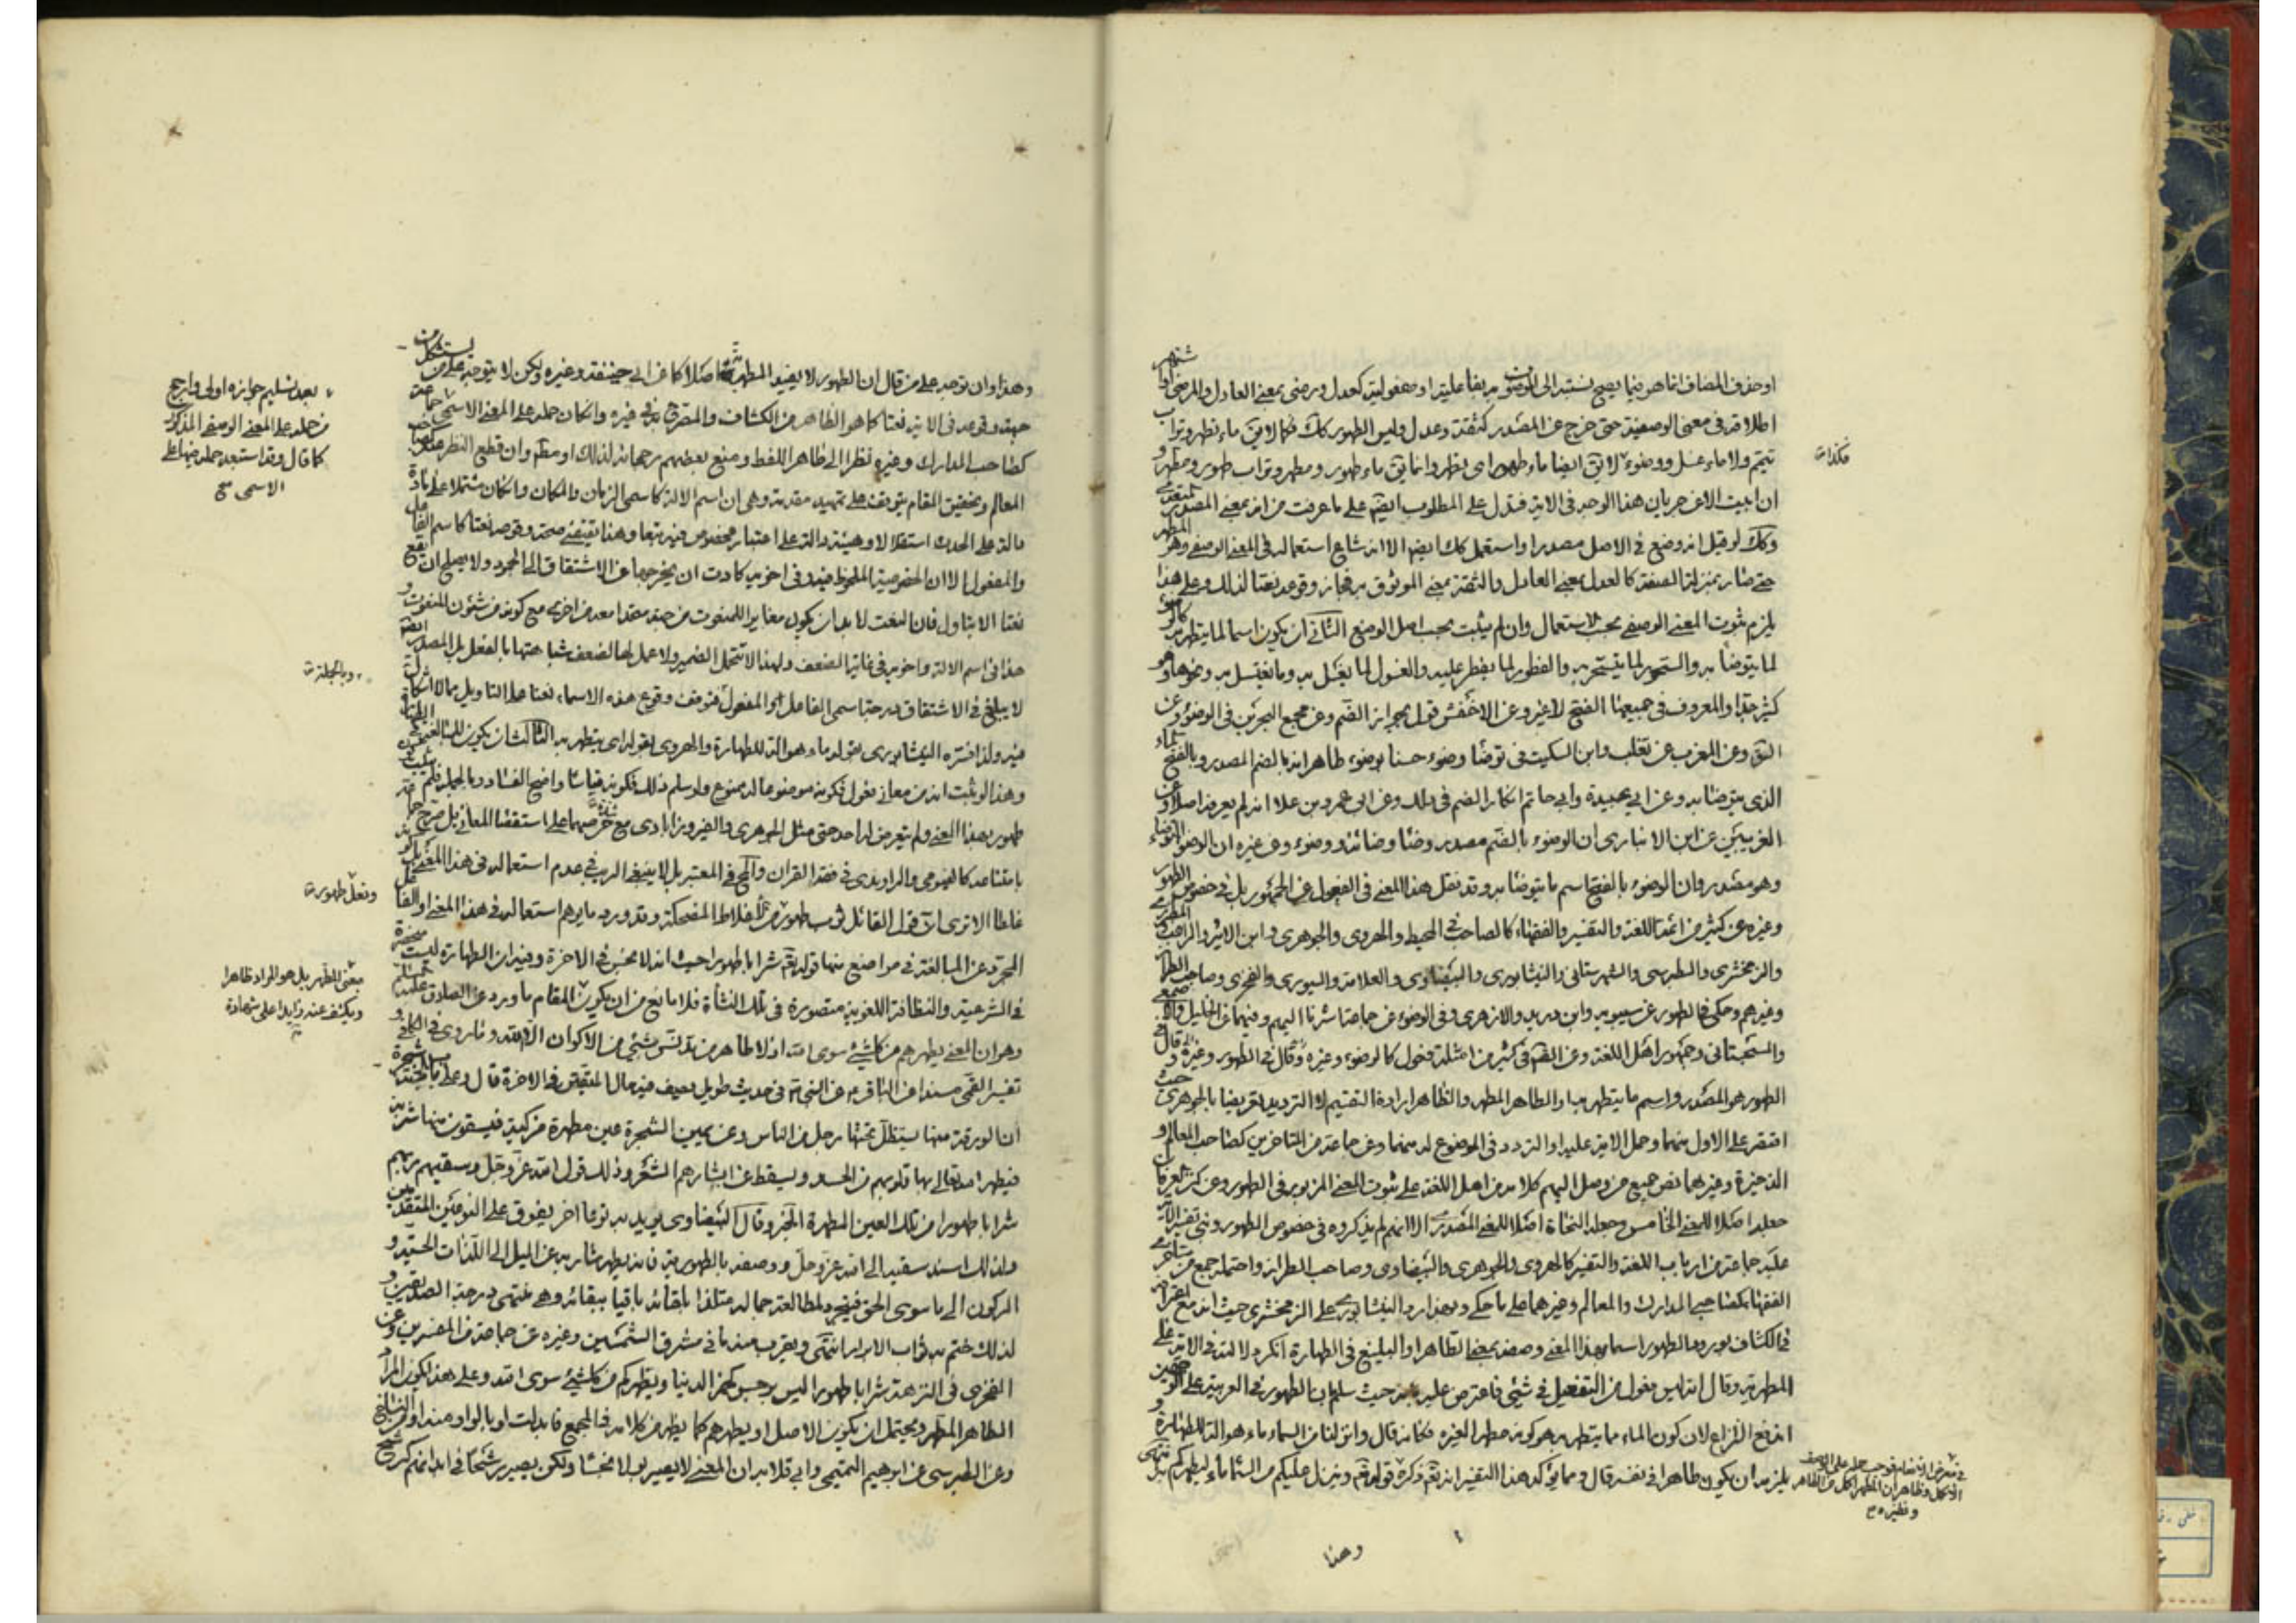 او حذف المضاف انما هو فيما يصح نسبته الى الموصوف مريفا عليته او مفعوليته كعدل ورضى بمعنى العادل والمرضى او
اطلاقه في معنى الوصفية حتى خرج عن المصدر كثقة وعدل وليس الطهور كك فكما لا يق ماء تطهر وتراب
تيمم ولا ماء غسل ووضوء لا يق ايضا ماء طهور اى تطهر وانما يق ماء طهور ومطهر وتراب طهور ومطهر و
ان ابيت الا عن جريان هذا الوجه في الاية فتدل على المطلوب ايضا على ما عرفت من انه بمعنى المصدر
وكك لو قيل انه وضع في الاصل مصدرا واستعمل كك ايضا الا انه شاع استعماله في المعنى الوصفى وهو
حتى صار بمنزلة الصفة كالعدل بمعنى العادل والثقة بمعنى الموثوق به فجاز وقوعه نعتا لذلك وعلى هذا
يلزم ثبوت المعنى الوصفى بحسب الاستعمال وان لم يثبت بحسب اصل الوضع الثانى ان يكون اسما لما يتطهر به
لما يتوضأ به والسحور لما يتسحر به والفطور لما يفطر عليه والغسول لما يغسل به وما يغتسل به ونحوها وهو
كثير جدا والمعروف في جميعها الفتح لا غير وعن الاخفش قول بجواز الضم وعن مجمع البحرين في الوضوء وعن
الق وعن المغرب عن ثعلب وابن السكيت في توضأ وضوء حسنا بوضوء طاهر انه بالضم المصدر وبالفتح
الذى يتوضأ به وعن ابي عبيدة وابي حاتم انكار الضم في ذلك وعن ابى عمرو بن علا انه لم يعرفه اصلا وعن
الغريبين عن ابن الانبارى ان الوضوء بالضم مصدر وضأ وضائة ووضوء وعن غيره ان الوضوء
وهو مصدر وان الوضوء بالفتح اسم ما يتوضأ به وقد نقل هذا المعنى في الفعول عن الجمهور بل في خصوص الطهور
وغيره عن كثير من ائمة اللغة والتفسير والفقهاء كالصاحب في المحيط والهروى والجوهرى وابن الاثير والراغب
والزمخشرى والطبرسى والشهرستانى والنيشابورى والبيضاوى والعلامة والسيورى والفخرى وصاحب الطراز
وغيرهم وحكى في الطهور عن سيبويه وابن دريد والازهرى وفي الوضوء عن جماعة اشرنا اليهم وفيهما عن الخليل والاصمعى
والسجستانى وجمهور اهل اللغة وعن الق في كثير من امثلة فعول كالوضوء وغيره وقال في الطهور وغيره وقال في
الطهور هو المصدر واسم ما يتطهر به او الطاهر المطهر والظاهر ارادة التقسيم لا الترديد تعريضا بالجوهرى حيث
اقتصر على الاول منهما وحمل الاية عليه او التردد في الموضوع له منهما وعن جماعة من المتاخرين كصاحب المعالم و
الذخيرة وغيرهما نص جميع من وصل اليهم كلامه من اهل اللغة على ثبوت المعنى المزبور في الطهور وعن كنز العرفان
جعله اصلا للمعنى الخامس وجعله النحاة اصلا للمعنى المصدرى الا انهم لم يذكروه في خصوص الطهور وبنى تفسير الاية
عليه جماعة من ارباب اللغة والتفسير كالهروى والجوهرى والبيضاوى وصاحب الطراز واحتمله جمع من متاخرى
الفقهاء كصاحبى المدارك والمعالم وغيرهما على ما حكى وبهذا رد النيشابورى على الزمخشرى حيث انه مع اعترافه
في الكشاف بورود الطهور اسما بهذا المعنى وصفة بمعنى الطاهر او البليغ في الطهارة انكر دلالته في الاية على
المطهرية وقال انه ليس فعول من التفعيل في شئ فاعترض عليه بانه حيث سلم ان الطهور في العربية على الوجهين
اندفع النزاع لان كون الماء مما يتطهر به هو كونه مطهرا لغيره فكانه قال وانزلنا من السماء ماء هو الة للطهارة و
يلزمه ان يكون طاهرا في نفسه قال ومما يؤكد هذا التفسير انه تعالى ذكره قوله تعالى وينزل عليكم من السماء ماء ليطهركم به انتهى
فكذات
وهذا
وهذا وان توجه على من قال ان الطهور لا يفيد المطهرية اصلا كما عن ابى حنيفة وغيره ولكن لا يتوجه على من يستشكل
جهة وقوعه في الاية نعتا كما هو الظاهر من الكشاف والمصرح به في غيره وان كان حمله على المعنى الاسمى جماعة
كصاحب المدارك وغيره نظرا الى ظاهر اللفظ ومنع بعضهم رجحانه لذلك او مطلقا وان قطع النظر عنه كصاحب
المعالم وتحقيق المقام يتوقف على تمهيد مقدمة وهى ان اسم الالة كاسمى الزمان والمكان وان كان مشتملا على مادة
دالة على الحدث استقلالا وهيئة دالة على اعتبار مخصوص فيه تبعا وهذا يقتضى صحة وقوعه نعتا كاسم الفاعل
والمفعول الا ان الخصوصية الملحوظة فيه وفى اخويه كادت ان يخرجها عن الاشتقاق الى الجمود ولا يصلح ان يقع
نعتا الا بتاول فان النعت لا بد ان يكون مغايرا للمنعوت من جهة متحدا معه من اخرى مع كونه من شئون المنعوت و
هذا في اسم الالة واخويه في غاية الضعف ولهذا لا تتحمل الضمير ولا عمل لها لضعف شباهتها بالفعل بل المصدر ايضا
لا يبلغ في الاشتقاق درجة اسمى الفاعل او المفعول فتوقف وقوع هذه الاسماء نعتا على التاويل مما لا اشكال
فيه ولذا فسره النيشابورى بقوله ماء هو الة للطهارة والهروى بقوله اى يتطهر به الثالث ان يكون للمبالغة
وهذا لو ثبت انه من معانى فعول فكونه موضوعا له ممنوع ولو سلم ذلك فكونه قياسا واضح الفساد وبالجملة فلم يثبت
طهور بهذا المعنى ولم يتعرض له احد حتى مثل الجوهرى والفيروزابادى مع حرصهما على استقصاء المعانى بل صرح جماعة
بامتناعه كالفيومى والراوندى في فقه القرآن والمحقق في المعتبر بل لا ينبغى الريب في عدم استعماله في هذا المعنى
غلطا الا ترى ان قول القائل ثوب طهور من الاغلاط المضحكة وقد ورد ما يوهم استعماله في هذا المعنى او الفاعل
المجرد عن المبالغة في مواضع منها قوله تعالى شرابا طهورا حيث انه لا نجس في الاخرة وفيه ان الطهارة ليست منحصرة
في الشرعية والنظافة اللغوية متصورة في تلك النشأة فلا مانع من ان يكون المقام ما ورد عن الصادق عليه السلام
وهو ان المعنى يطهرهم من كل شئ سوى الله اذ لا طاهر من تدنس بشئ من الاكوان الا الله وما روى في الكافى و
تفسير القمى مسندا عن الباقر ع عن النبى ص في حديث طويل يصف فيه حال المتقين في الاخرة قال وعلى باب الجنة شجرة
ان الورقة منها يستظل تحتها رجل من الناس وعن يمين الشجرة عين مطهرة مزكية فيسقون منها شربة
فيطهر الله تعالى بها قلوبهم من الحسد ويسقط عن ابشارهم الشعر وذلك قول الله عز وجل وسقيهم ربهم
شرابا طهورا من تلك العين المطهرة الخبر وقال البيضاوى يريد به نوعا اخر يفوق على النوعين المتقدمين
ولذلك اسند سقيه الى الله عز وجل ووصفه بالطهورية فانه يطهر شاربه عن الميل الى اللذات الحسية و
الركون الى ما سوى الحق فيتجرد لمطالعة جماله متلذذا بلقائه باقيا ببقائه وهى منتهى درجة الصديقين و
لذلك ختم به ثواب الابرار انتهى ويقرب منه ما في مشرق الشمسين وغيره عن جماعة من المفسرين وعن
الفخرى في النزهة شرابا طهورا اليس برجس كخمر الدنيا ويطهركم من كل شئ سوى الله وعلى هذا يكون المراد
الطاهر المطهر ويحتمل ان يكون الاصل او يطهرهم كما يظهر من كلامه في المجمع فابدلت او بالواو منه او من النساخ
وعن الطبرسى عن ابرهيم التيمى وابى قلابة ان المعنى لا يصير بولا نجسا ولكن يصير رشحا في ابدانهم كرشح
بعد تسليم جوازه اولى وارجح
من حمله على المعنى الوصفى المذكور
كما قال وقد استبعد حمله فيها على
الاسمى صح
وبالجملة
ونعل طهور
بمعنى المطهر بل هو المراد ظاهرا
ويكشف عنه زايدا على شهادة